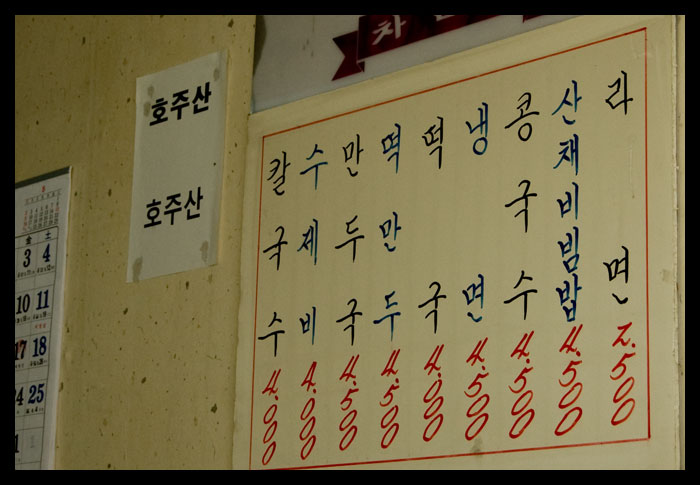 차
호주산
호주산
칼국수 4.000
수제비 4.000
만두국 4.500
떡만두 4.500
떡국 4.000
냉면 4.500
콩국수 4.500
산채비빔밥 4.500
라면 2.500
金 土
3 4
10 11
17 18
24 25
1